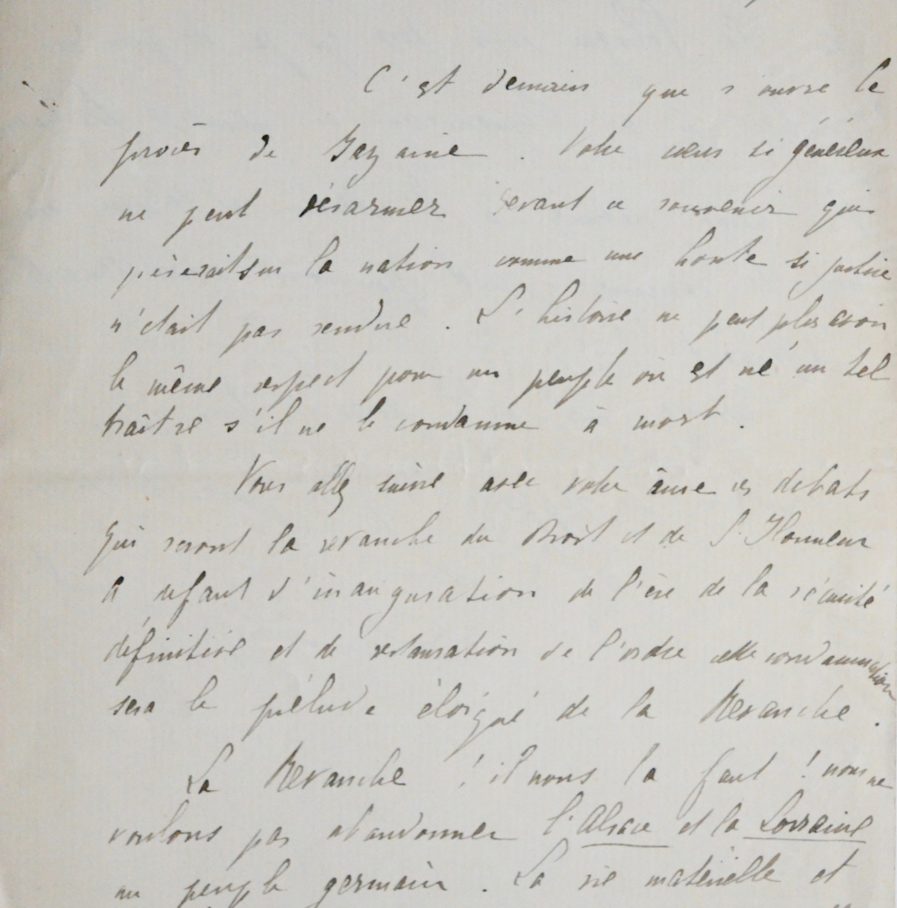 C'est demain que s'ouvre le
procès de Bazaine. Votre cœur si généreux
ne peut désarmer devant ce souvenir qui
pèserait sur la nation comme une honte si justice
n'était pas rendue. L'histoire ne peut plus avoir
le même respect pour un peuple où est né un tel
traître s'il ne le condamne à mort.
Vous allez suivre avec votre âme ces débats
qui seront la revanche du Droit et de l'Honneur
A défaut d'inauguration de l'ère de la sécurité
définitive et de restauration de l'ordre cette condamnation
sera le prélude éloigné de la Revanche.
La Revanche ! il nous la faut ! nous ne
voulons pas abandonner l'Alsace et la Lorraine
au peuple germain. La vie matérielle et